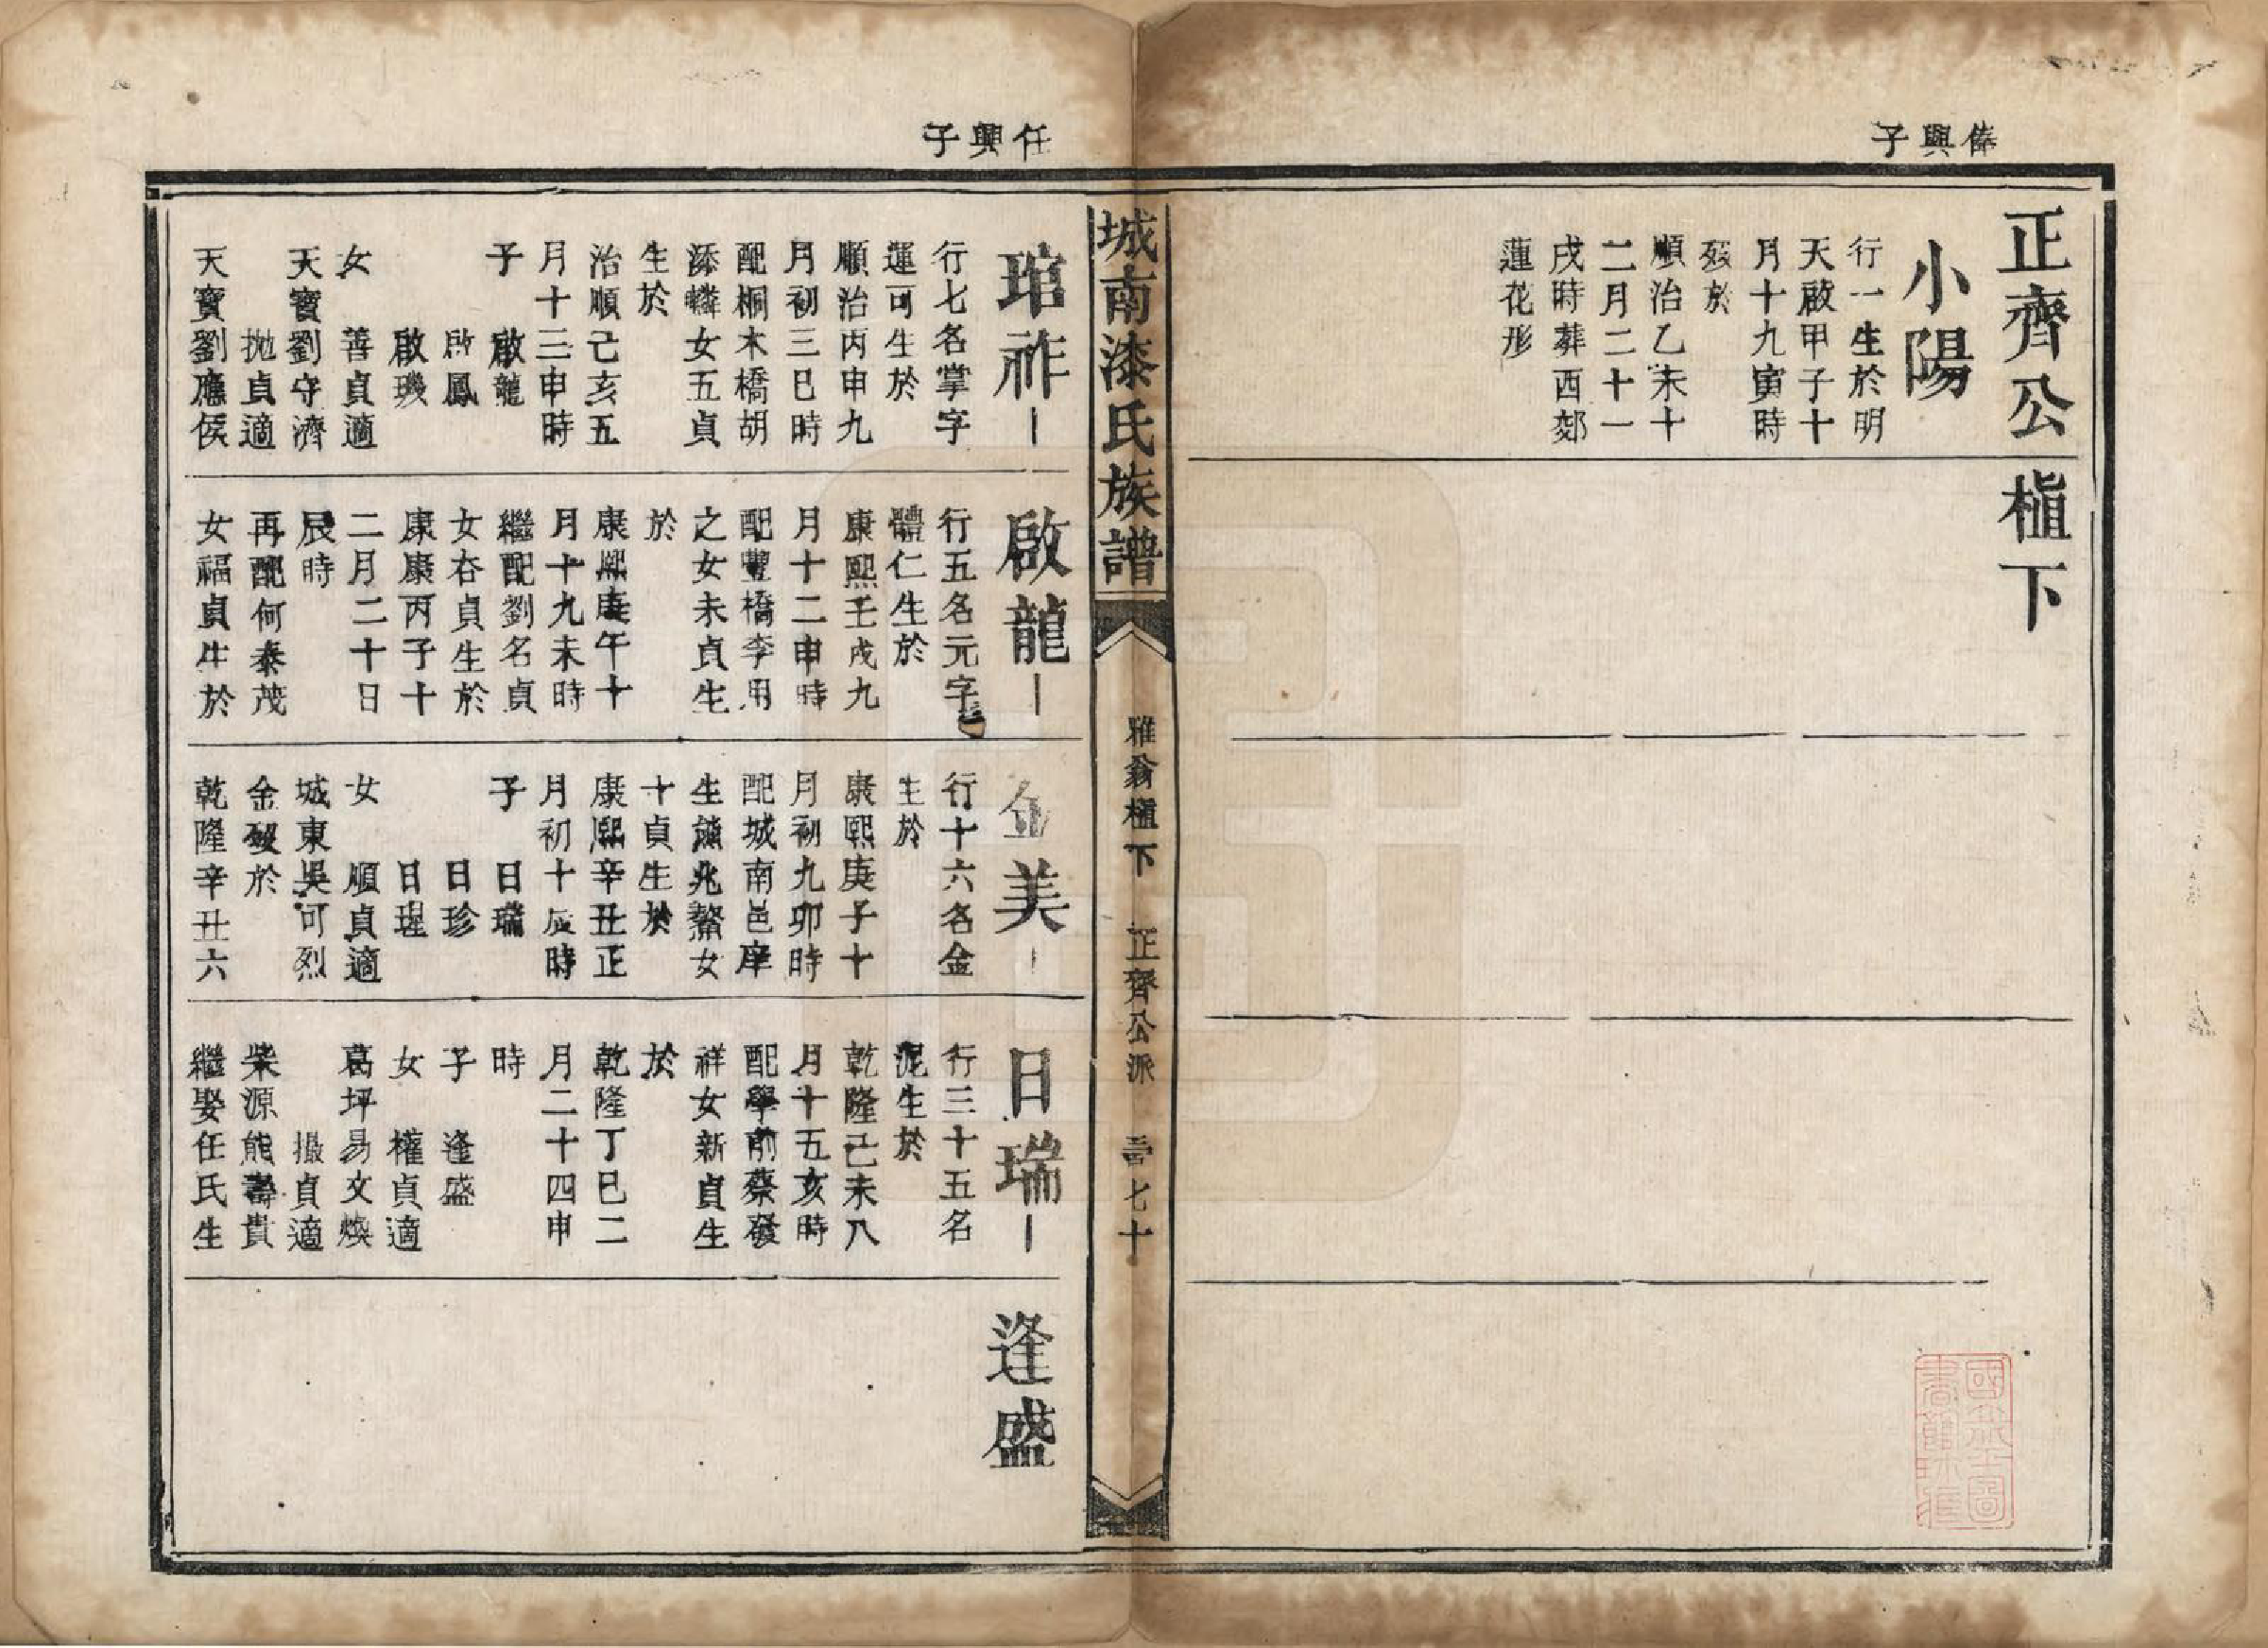 俸興子
正齊公植下
小陽
行一生於明
天啟甲子十
月十九寅時
歿於
順治乙未十
二月二十一
戌時葬西郊
蓮花形
城南漆氏族譜
雅翁植下
正齊公派
七十
任興子
琯祚
行七名掌字
運可生於
順治丙申九
月初三巳時
配桐木橋胡
漆蟒女五貞
生於
治順己亥五
月十三申時
子 啟龍
啟鳳
啟璣
女 善貞適
天寶劉守濟
拋貞適
天寶劉應侯
啟龍
行五名元字
體仁生於
康熙壬戌九
月十二申時
配豐橋李用
之女未貞生
於
康熙庚午十
月十九未時
繼配劉名貞
女杏貞生於
康康丙子十
二月二十日
辰時
再配何泰茂
女福貞生於
金美
行十六名金
生於
康熙庚子十
月初九卯時
配城南邑庠
生熊兆鰲女
十貞生於
康熙辛丑正
月初十辰時
子 日瑞
日珍
日珵
女 順貞適
城東吳可烈
金歿於
乾隆辛丑六
日瑞
行三十五名
泥生於
乾隆己未八
月十五亥時
配學前蔡發
祥女新貞生
於
乾隆丁巳二
月二十四申
時
子 逢盛
女 權貞適
葛坪易文煥
撮貞適
柴源熊壽貴
繼娶任氏生
逢盛